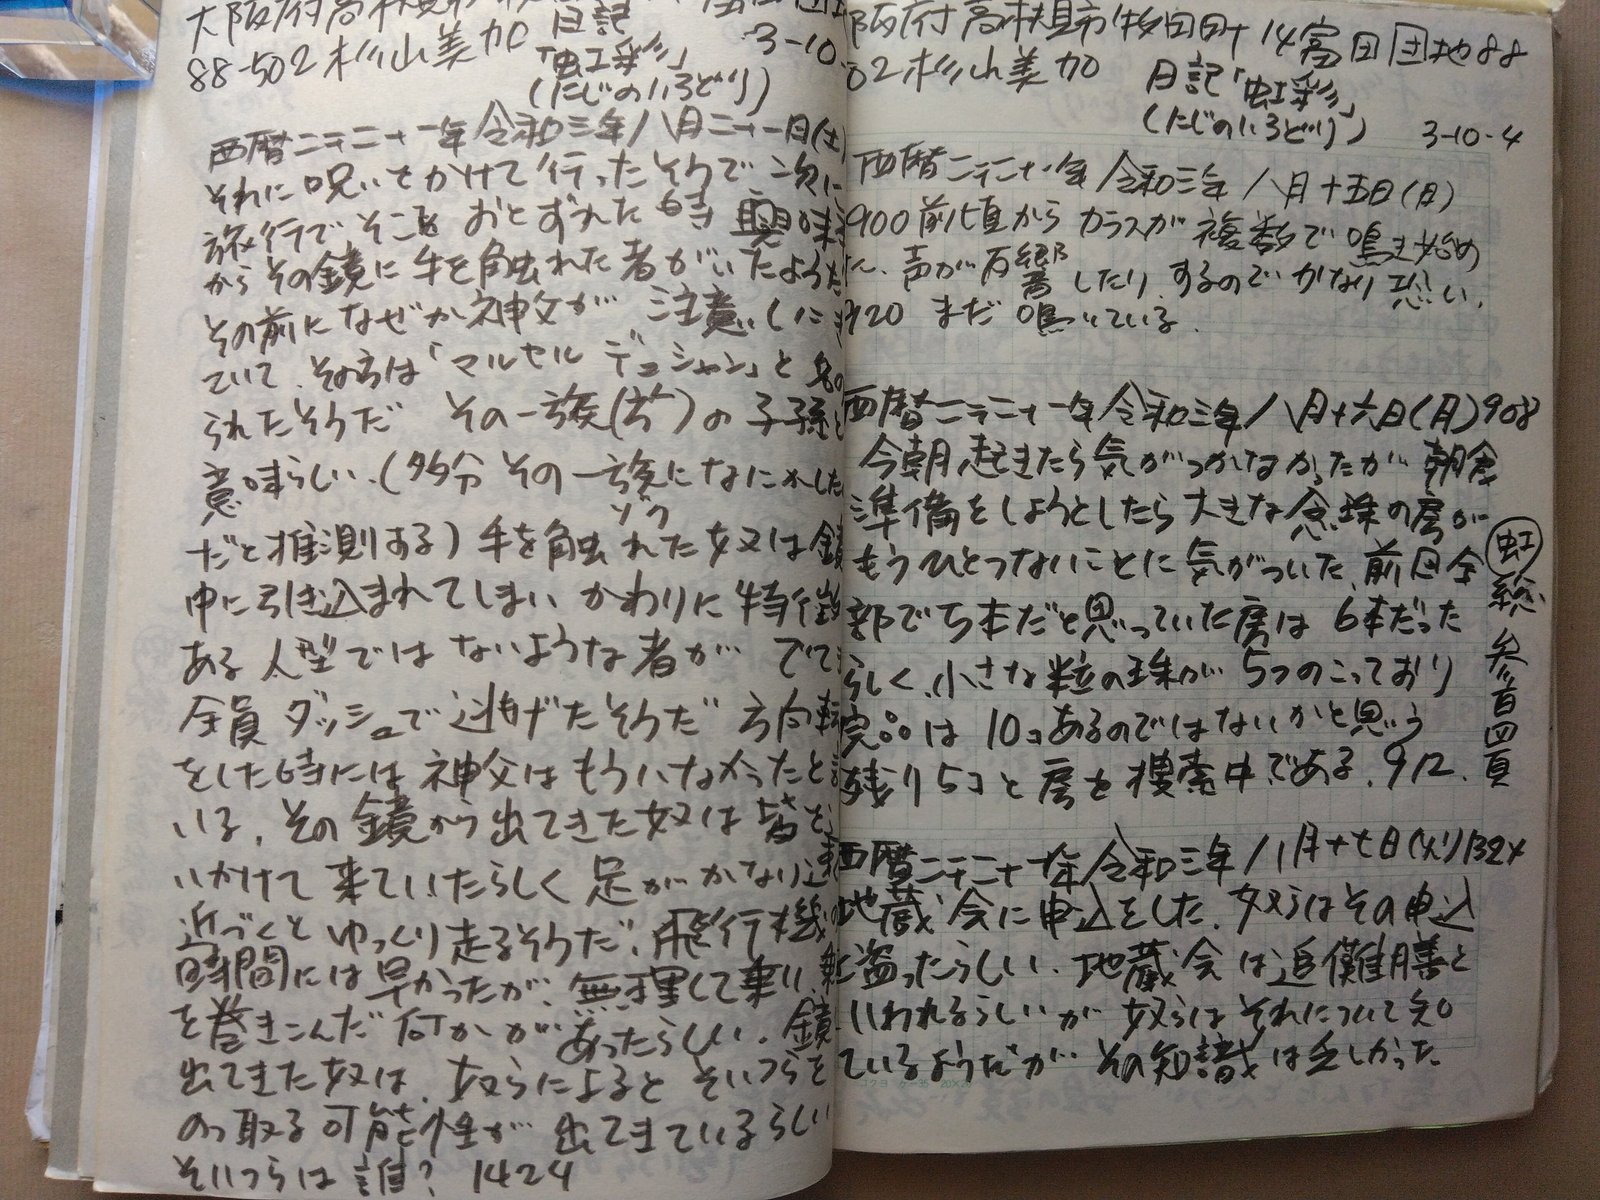 大阪府高槻市
88-502 杉山美加 日記
「虹彩」
(にじのいろどり)
3-10
西暦二千二十一年 令和三年/八月二十一日(土)
それに呪いをかけて行ったそうで 次に
旅行でそこを おとずれた時 興味
からその鏡に手を触れた者がいたようだ
その前になぜか神父が 注意 し
ていて、その方は「マルセル デュシャン」と名の
られたそうだ その一族(ゾク)の子孫と
意味らしい、(多分 その一族になにかした
だと推測する) 手を触れた奴は鏡
中に引き込まれてしまい かわりに特徴
ある人型ではないような者が でて
全員 ダッシュで逃げたそうだ 方向転
をした時には神父はもういなかったと言
いる、その鏡から出てきた奴は皆を
いかけて来ていたらしく足がかなり速
近づくと ゆっくり走るそうだ、飛行機
時間には早かったが、無理して乗り、
を巻きこんだ何かがあったらしい、鏡
出てきた奴は、奴らによると そいつらを
のっ取る可能性が 出てきているらしい
そいつらは誰? 1424
阪府高槻市牧田町14富田団地88
02 杉山美加 日記「虹彩」
(にじのいろどり) 3-10-4
西暦二千二十一年 令和三年/八月十五日(日)
900前頃から カラスが 複数で鳴き始め
声が反響したり、するのでかなり恐い、
920 まだ 鳴いている、
西暦二千二十一年 令和三年/八月十六日(月)908
今朝起きたら気がつかなかったが 朝食
準備をしようとしたら大きな念珠の房が
もうひとつないことに気がついた、前回全
部で5本だと思っていた房は 6本だった
らしく、小さな粒の珠が 5つのこっており
完品は 10コあるのではないかと思う
残り5コと房を捜索中である、912、
虹総 参百四頁
西暦二千二十一年 令和三年/八月十七日(火)1324
地蔵会に申込をした、奴らはその申込
盗ったらしい、地蔵会は追儺膳と
いわれるらしいが 奴らはそれについて知
ているようだが その知識は乏しかった